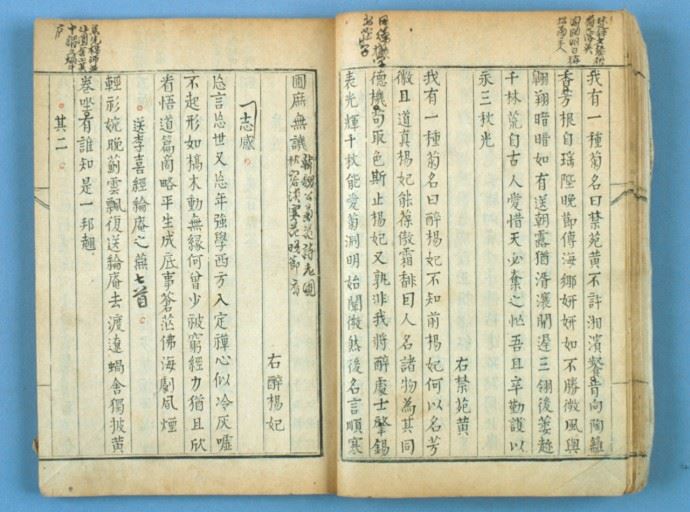 我有一種菊名曰禁苑黃不許湘濱餐肯向陶籬
香芳根自瑶陛晚節傳海鄉妍妍如不勝微風與
翱翔暗暗如有送朝露猶湑瀼開遲三翎後萎趂
千林荒自古人愛惜天必奪之忙吾且辛勤護以
永三秋光
右禁苑黃
我有一種菊名曰醉楊妃不知前楊妃何以名芳
微且道真楊妃能葆傲霜馡目人名諸物為其同
德機苟取色斯止楊妃又孰非我將醉處士擎錫
表光輝千枚能愛菊淵明始闡微然後名言順寒
圃麻無譏 韓魏公菊花詩老圃
秋容淡寒花晚節香
右醉楊妃
一志感
忩言忩世又忩年強學西方入定禪心似冷灰噓
不起形如槁木動無緣何曾少被窮經力猶且欣
省悟道篇商略平生成底事蒼茫佛海劇風煙
送李喜經綸庵之 七首
輕 婉晚薊雲飄復送綸庵去渡遼蝸舍獨披黃
卷坐有誰知是一邦翹
其二